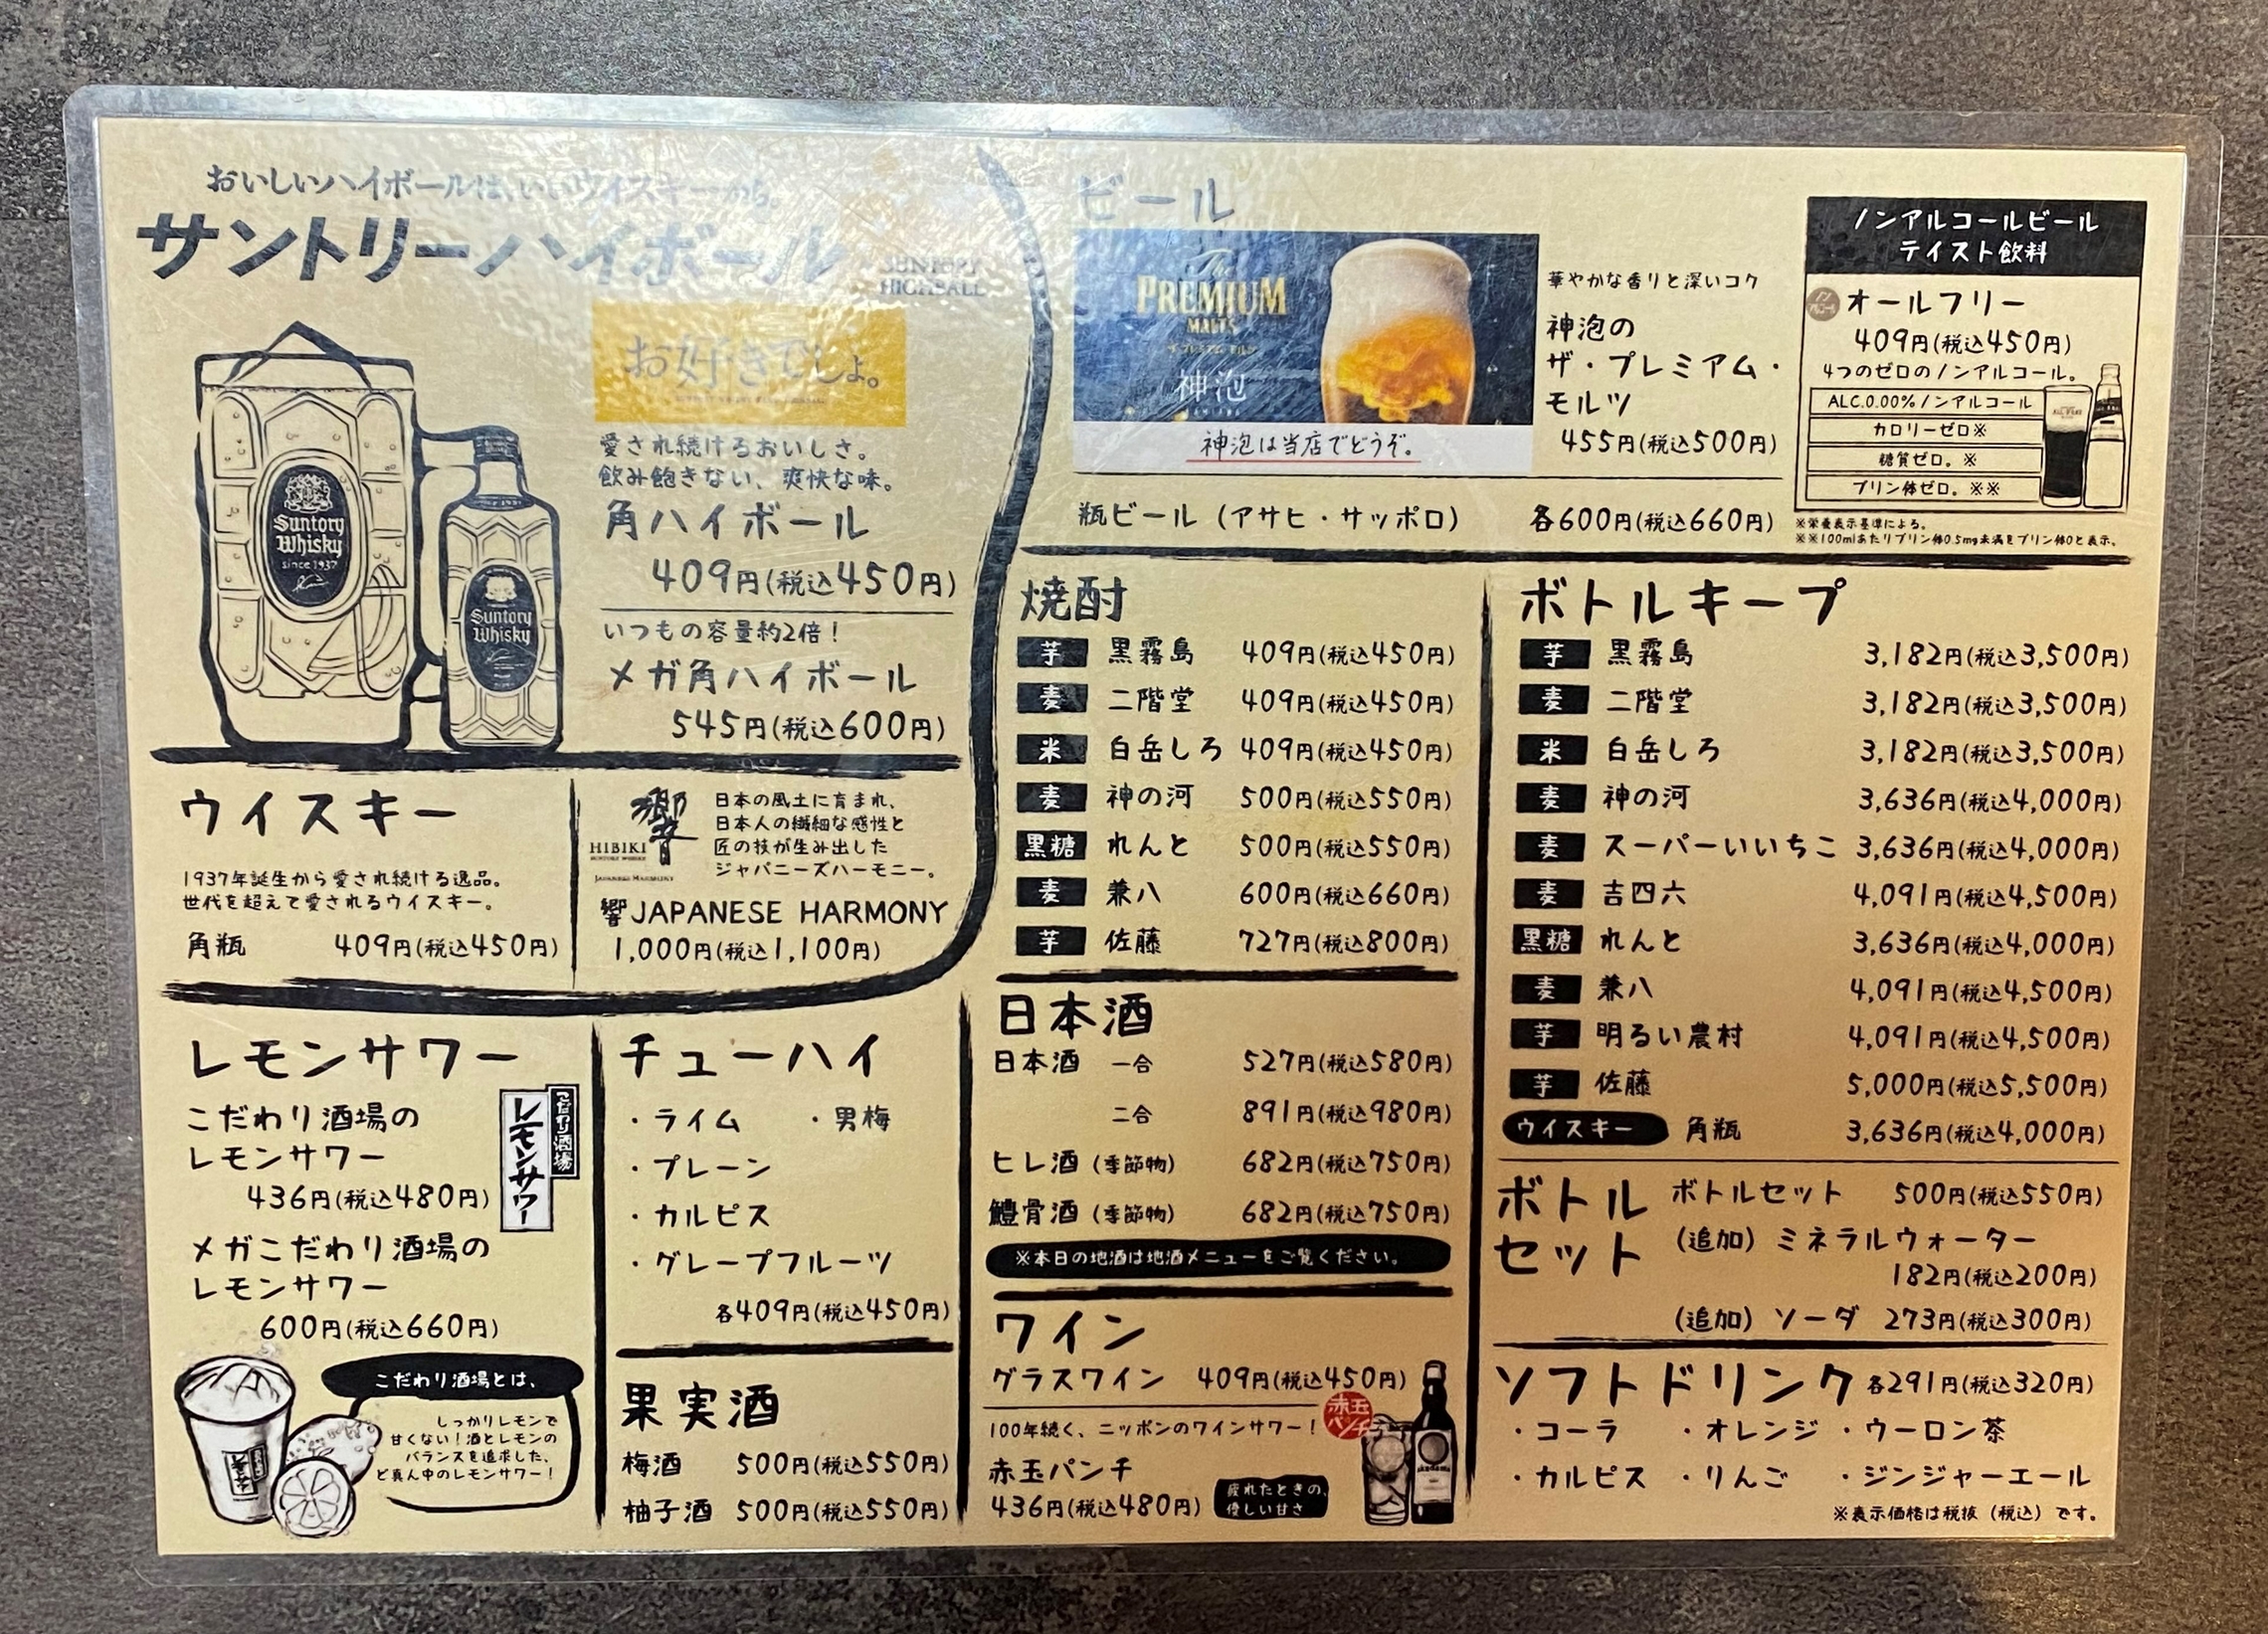 おいしいハイボールは、いいウイスキーから。
サントリーハイボール
SUNTORY
HIGHBALL
お好きでしょ。
愛され続けるおいしさ。
飲み飽きない、爽快な味。
角ハイボール
409円(税込450円)
いつもの容量約2倍！
メガ角ハイボール
545円(税込600円)
Suntory
Whisky
since 1937
Suntory
Whisky
ウイスキー
1937年誕生から愛され続ける逸品。
世代を超えて愛されるウイスキー。
角瓶 409円(税込450円)
響
HIBIKI
SUNTORY WHISKY
JAPANESE HARMONY
日本の風土に育まれ、
日本人の繊細な感性と
匠の技が生み出した
ジャパニーズハーモニー。
響JAPANESE HARMONY
1,000円(税込1,100円)
レモンサワー
こだわり酒場の
レモンサワー
436円(税込480円)
こだわり酒場
レモンサワー
メガこだわり酒場の
レモンサワー
600円(税込660円)
こだわり酒場とは、
しっかりレモンで
甘くない！酒とレモンの
バランスを追求した、
ど真ん中のレモンサワー！
チューハイ
・ライム ・男梅
・プレーン
・カルピス
・グレープフルーツ
各409円(税込450円)
果実酒
梅酒 500円(税込550円)
柚子酒 500円(税込550円)
ビール
The
PREMIUM
MALT'S
ザ・プレミアム・モルツ
神泡
神泡は当店でどうぞ。
華やかな香りと深いコク
神泡の
ザ・プレミアム・
モルツ
455円(税込500円)
瓶ビール（アサヒ・サッポロ） 各600円(税込660円)
ノンアルコールビール
テイスト飲料
ノンアルコール
オールフリー
409円(税込450円)
4つのゼロのノンアルコール。
ALC.0.00%ノンアルコール
カロリーゼロ※
糖質ゼロ。※
プリン体ゼロ。※※
※栄養表示基準による。
※※100mlあたりプリン体0.5mg未満をプリン体0と表示。
焼酎
芋 黒霧島 409円(税込450円)
麦 二階堂 409円(税込450円)
米 白岳しろ 409円(税込450円)
麦 神の河 500円(税込550円)
黒糖 れんと 500円(税込550円)
麦 兼八 600円(税込660円)
芋 佐藤 727円(税込800円)
日本酒
日本酒 一合 527円(税込580円)
二合 891円(税込980円)
ヒレ酒（季節物） 682円(税込750円)
鱧骨酒（季節物） 682円(税込750円)
※本日の地酒は地酒メニューをご覧ください。
ワイン
グラスワイン 409円(税込450円)
100年続く、ニッポンのワインサワー！
赤玉
パンチ
赤玉パンチ
436円(税込480円)
疲れたときの、
優しい甘さ
ボトルキープ
芋 黒霧島 3,182円(税込3,500円)
麦 二階堂 3,182円(税込3,500円)
米 白岳しろ 3,182円(税込3,500円)
麦 神の河 3,636円(税込4,000円)
麦 スーパーいいちこ 3,636円(税込4,000円)
麦 吉四六 4,091円(税込4,500円)
黒糖 れんと 3,636円(税込4,000円)
麦 兼八 4,091円(税込4,500円)
芋 明るい農村 4,091円(税込4,500円)
芋 佐藤 5,000円(税込5,500円)
ウイスキー 角瓶 3,636円(税込4,000円)
ボトル
セット
ボトルセット 500円(税込550円)
(追加) ミネラルウォーター
182円(税込200円)
(追加) ソーダ 273円(税込300円)
ソフトドリンク 各291円(税込320円)
・コーラ ・オレンジ ・ウーロン茶
・カルピス ・りんご ・ジンジャーエール
※表示価格は税抜（税込）です。